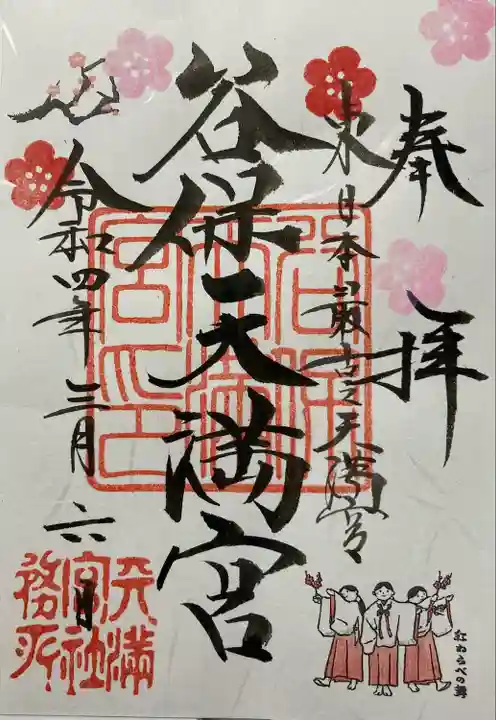 奉拝
東日本最古之天満宮
谷保天満宮
谷保天満宮印
令和四年三月六日
天満宮社務所
紅わらべの舞